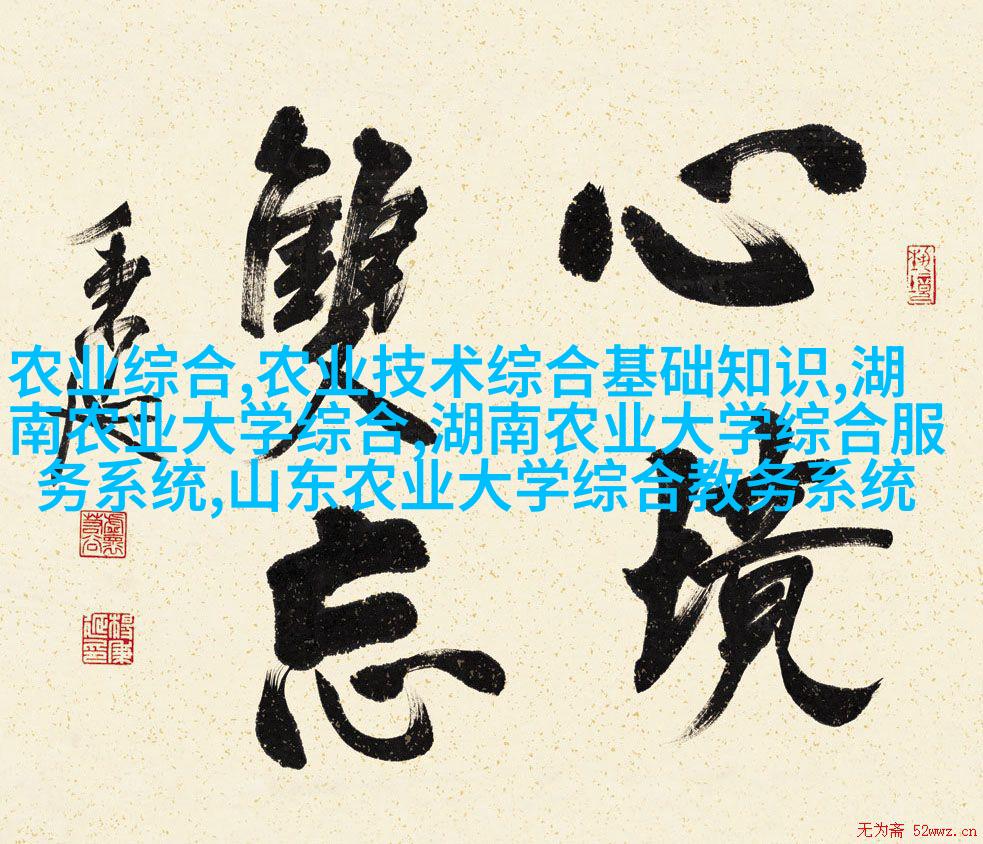 心境
雙忘
农业综合,农业技术综合基础知识,湖
南农业大学综合,湖南农业大学综合服
务系统,山东农业大学综合教务系统
无为斋 52wwz.cn